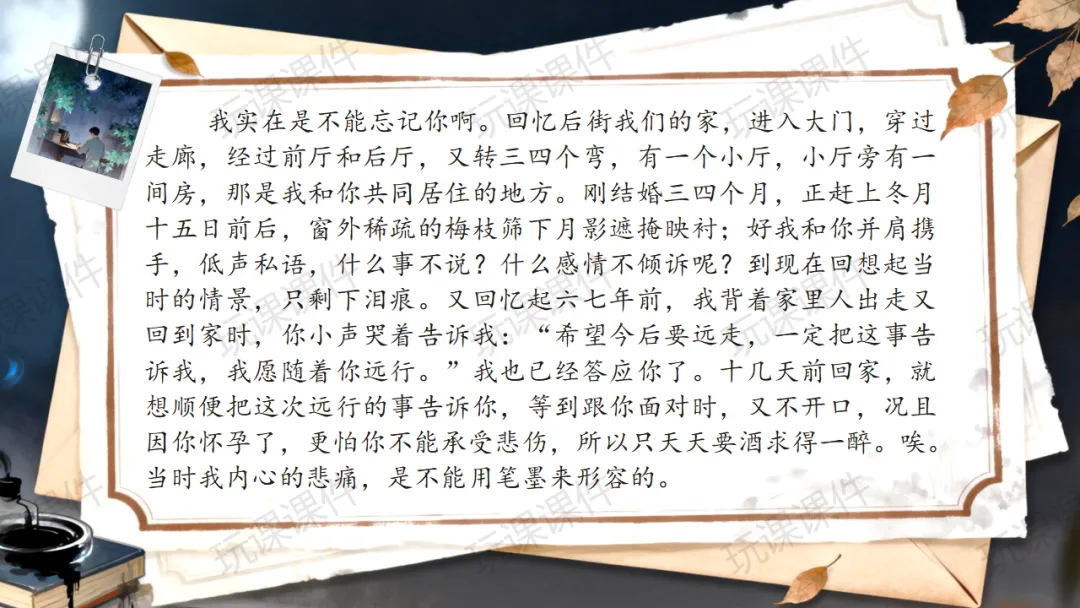 我实在是不能忘记你啊。回忆后街我们的家，进入大门，穿过
走廊，经过前厅和后厅，又转三四个弯，有一个小厅，小厅旁有一
间房，那是我和你共同居住的地方。刚结婚三四个月，正赶上冬月
十五日前后，窗外稀疏的梅枝筛下月影遮掩映衬；好我和你并肩携
手，低声私语，什么事不说？什么感情不倾诉呢？到现在回想起当
时的情景，只剩下泪痕。又回忆起六七年前，我背着家里人出走又
回到家时，你小声哭着告诉我：“希望今后要远走，一定把这事告
诉我，我愿随着你远行。”我也已经答应你了。十几天前回家，就
想顺便把这次远行的事告诉你，等到跟你面对时，又不开口，况且
因你怀孕了，更怕你不能承受悲伤，所以只天天要酒求得一醉。唉。
当时我内心的悲痛，是不能用笔墨来形容的。
玩课课件
玩课课件
玩课课件
玩课课件
玩课课件
玩课课件
玩课课件
玩课课件
玩课课件
玩课课件